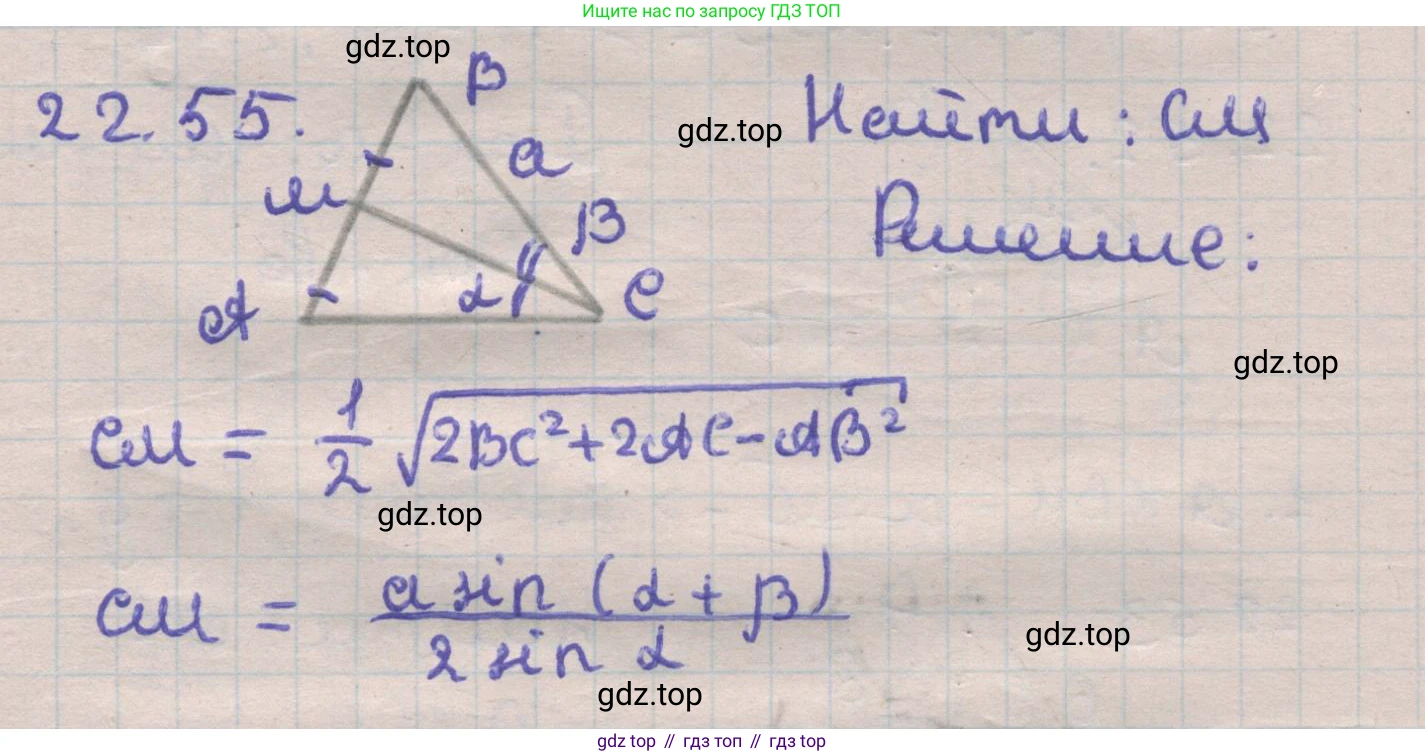 Ищите нас по запросу ГДЗ ТОП
gdz.top
22.55.
B
M
a
β
A
α
C
gdz.top
Найти: CM
Решение:
gdz.top
CM = 1/2 √(2BC²+2AC-AB²)
gdz.top
CM = a sin (α + β) / 2 sin α
gdz.top
gdz.top
gdz top // гдз топ // гдз top